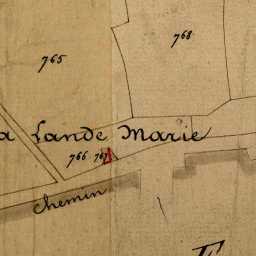 768
765
a Lande Marie
766 767
chemin